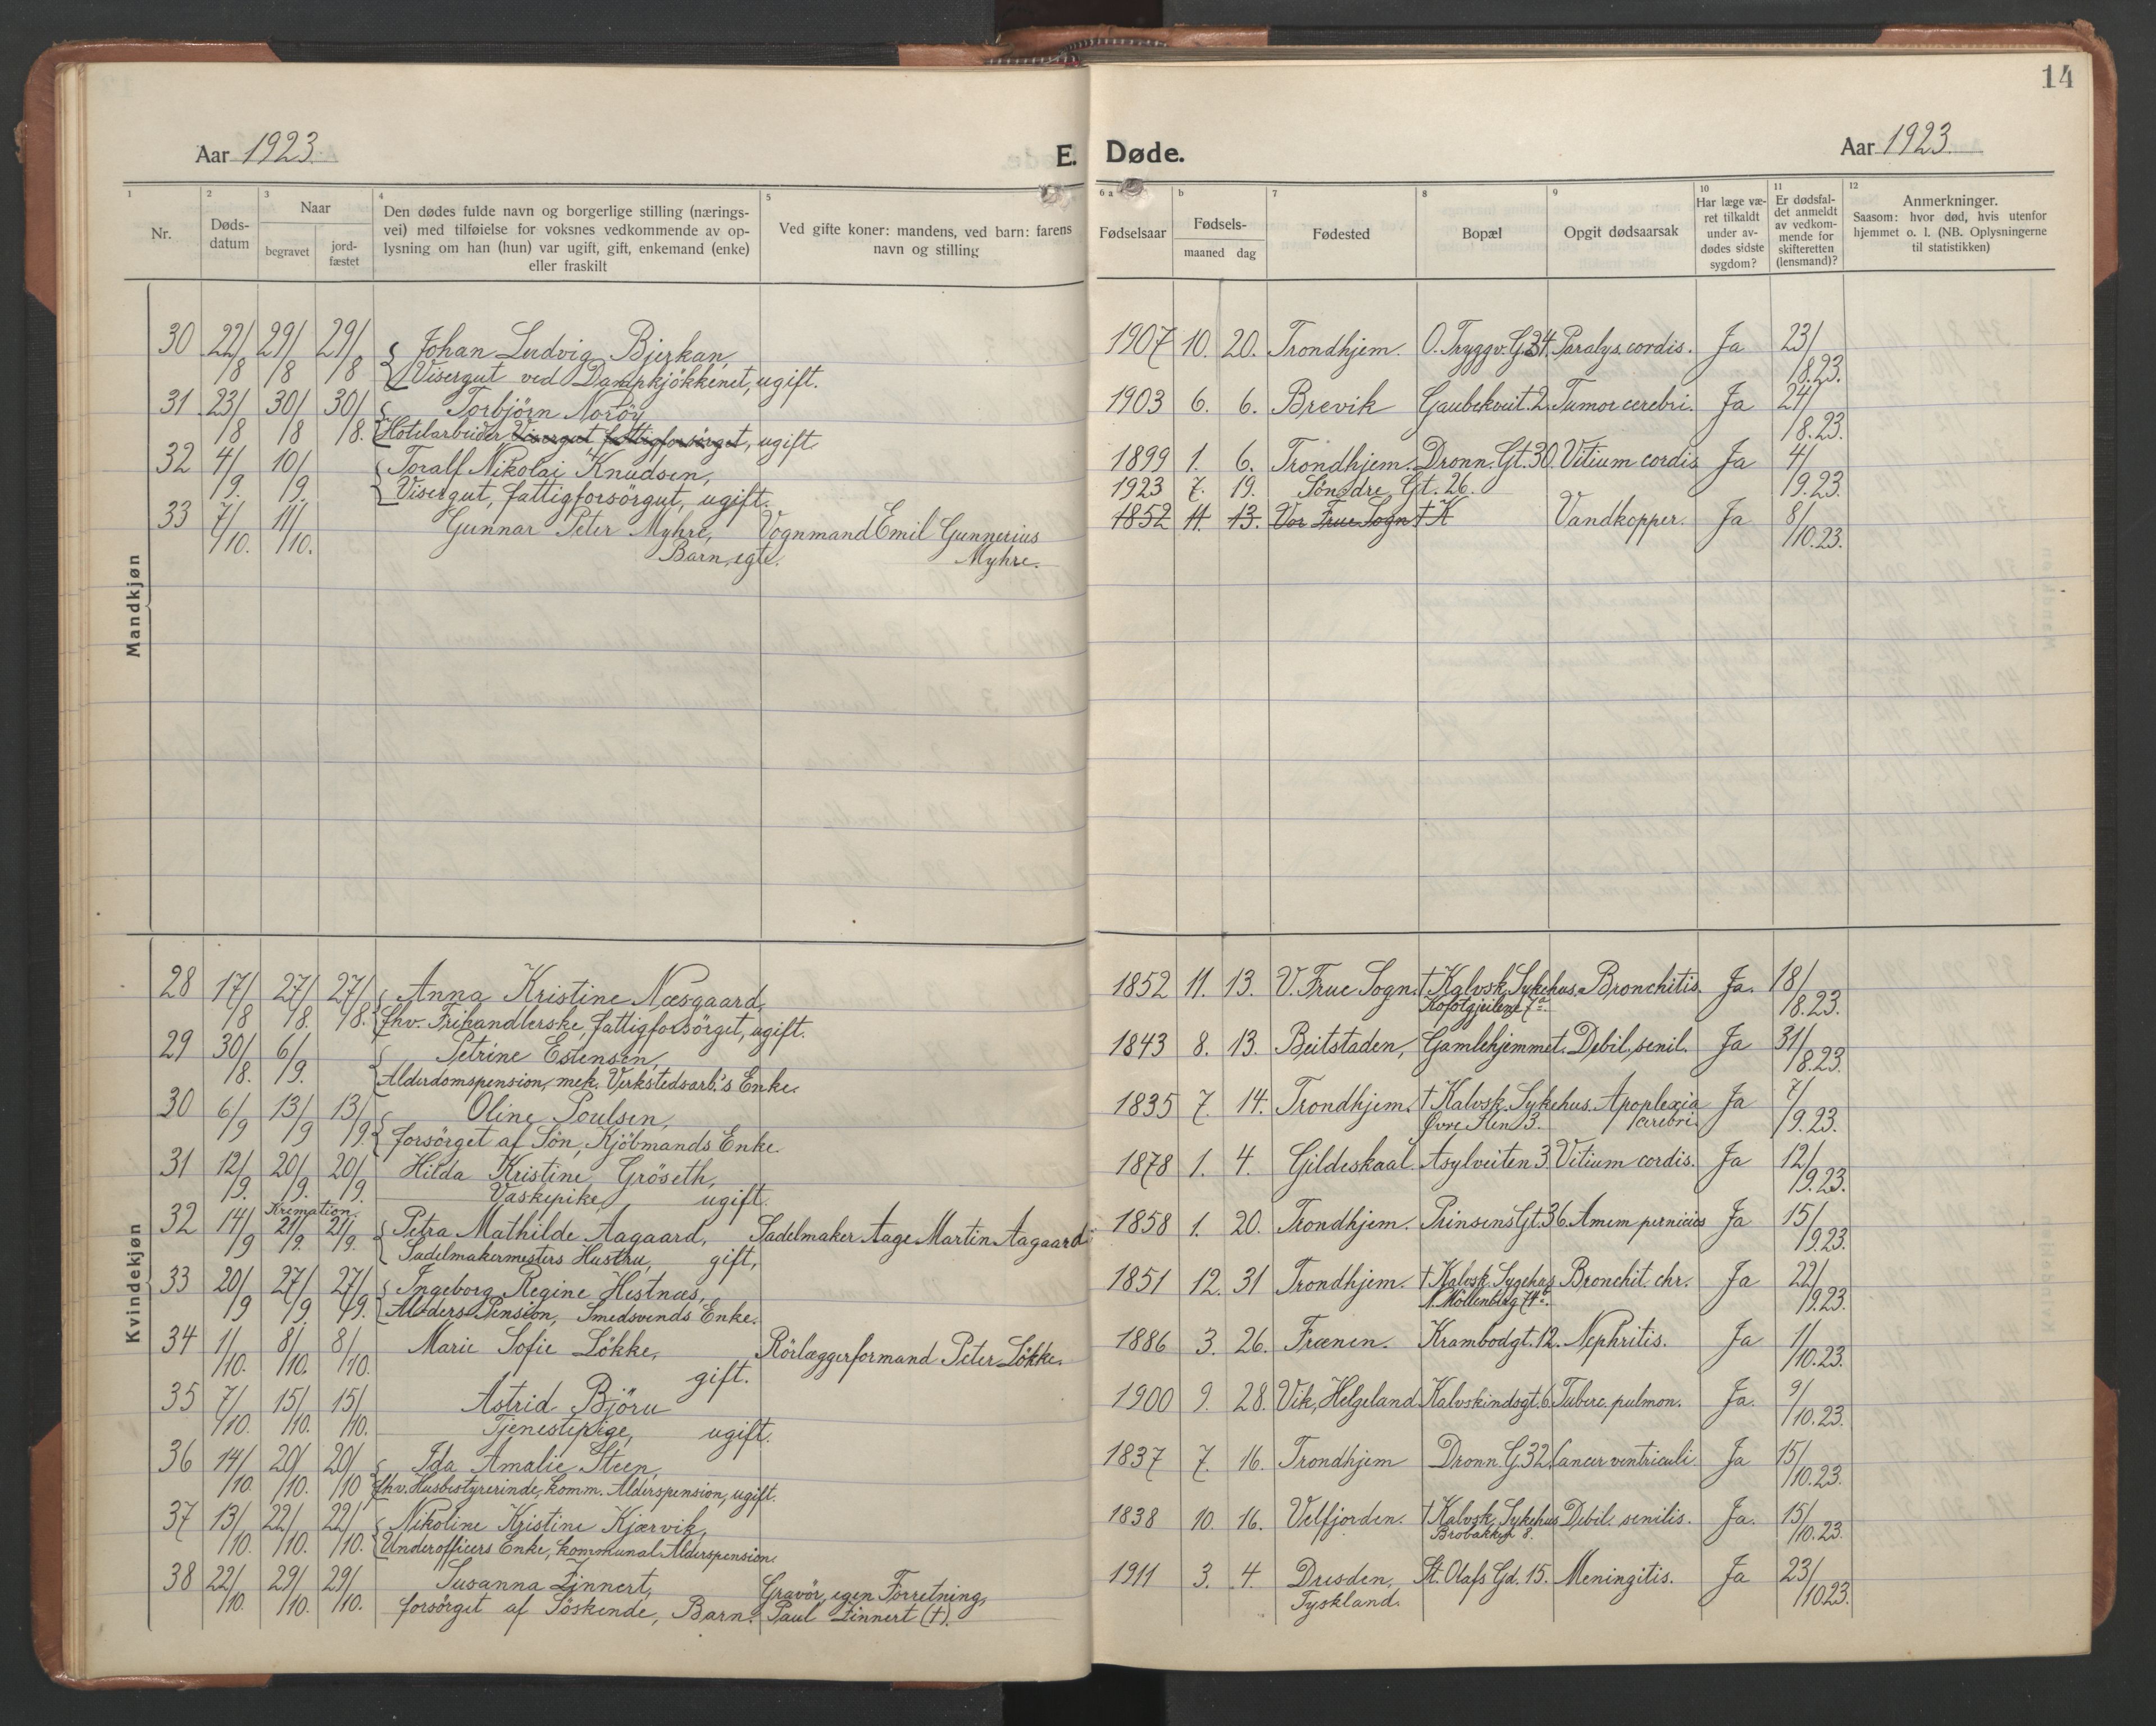 14
Aar 1923.
E. Døde.
Aar 1923.
1 2 3 4 5 6 a b 7 8 9 10 11 12
Nr.
Døds-
datum
Naar
begravet
jord-
fæstet
Den dødes fulde navn og borgerlige stilling (nærings-
vei) med tilføielse for voksnes vedkommende av op-
lysning om han (hun) var ugift, gift, enkemand (enke)
eller fraskilt
Ved gifte koner: mandens, ved barn: farens
navn og stilling
Fødselsaar
Fødsels-
maaned dag
Fødested
Bopæl
Opgit dødsaarsak
Har læge væ-
ret tilkaldt
under av-
dødes sidste
sygdom?
Er dødsfal-
det anmeldt
av vedkom-
mende for
skifteretten
(lensmand)?
Anmerkninger.
Saasom: hvor død, hvis utenfor
hjemmet o. l. (NB. Oplysningerne
til statistikken)
Mandkjøn
30 22/8 29/8 29/8 Johan Ludvig Bjerkan, 1907 10. 20. Trondhjem. O. Tryggv. G. 34. Paralys. cordis. Ja 23/8.23.
Visergut ved Dampkjökkenet, ugift.
31 23/8 30/8 30/8. Torbjörn Noröy 1903 6. 6. Brevik Gaubekveit. 2. Tumor cerebri. Ja 24/8.23.
Hotelarbeider Visergut fattigforsörget, ugift
32 4/9. 10/9. Toralf Nikolai Knudsen, 1899 1. 6. Trondhjem. Dronn. Gt. 30. Vitium cordis Ja 4/9.23.
Visergut, fattigforsörgut, ugift.
1923 7. 19. Söndre Gt. 26.
33 7/10. 11/10. Gunnar Peter Myhre, Vognmand Emil Gunnerius 1852 11. 13. Vor Frue Sogn † K Vandkopper. Ja 8/10.23.
Barn, egte. Myhre.
Kvindekjøn
28 17/8 27/8. 27/8. Anna Kristine Næsgaard, 1852 11. 13. V. Frue Sogn. † Kalvsk. Sykehus. Bronchitis. Ja. 18/8.23.
fhv. Frihandlerske, fattigforsörget, ugift.
29 30/8. 6/9. Petrine Estensen, 1843 8. 13. Beitstaden, Gamlehjemmet. Debil. senil. Ja 31/8.23.
Alderdomspension, mek. Verkstedsarb.'s Enke.
30 6/9 13/9 13/9. Oline Poulsen, 1835 7. 14. Trondhjem. † Kalvsk. Sykehus. Apoplexia Ja 7/9.23.
forsörget af Sön, Kjöbmands Enke. Øvre Ilen 3. cerebri.
31 12/9. 20/9. 20/9. Hilda Kristine Gröseth, 1878 1. 4. Gildeskaal. Asylveiten 3 Vitium cordis. Ja 12/9.23.
Vaskepike, ugift.
Kremation.
32 14/9 21/9. 21/9. Petra Mathilde Aagaard, Sadelmaker Aage Martin Aagaard 1858 1. 20. Trondhjem. Prinsens Gt. 36. Ja 15/9.23.
Sadelmakermesters Hustru, gift,
33 20/9 27/9. 27/9. Ingeborg Regine Hestnæs, 1851 12. 31 Trondhjem. † Kalvsk. Sygehus Bronchit. chr. Ja 22/9.23.
Alders Pension, Smedsvends Enke. N. Möllenberg 74
34 1/10. 8/10. 8/10. Marie Sofie Lökke, Rörlæggerformand Peter Lökke. 1886 3. 26. Frænen. Krambodgt. 12. Nephritis. Ja 1/10.23.
gift.
35 7/10. 15/10. 15/10. Astrid Björu 1900 9. 28. Vik, Helgeland Kalvskindsgt. 6. Tuberc. pulmon. Ja. 9/10.23.
Tjenestepige, ugift.
36 14/10. 20/10. 20/10 Ida Amalie Steen, 1837 7. 16. Trondhjem Dronn. G. 32 Cancer ventriculi Ja 15/10.23.
fhv. Husbestyrerinde, komm. Alderspension, ugift.
37 13/10. 22/10. 22/10. Nikoline Kristine Kjærvik, 1838 10. 16. Velfjorden. † Kalvsk. Sykehus Debil. senilis. Ja. 15/10.23.
Underofficers Enke, kommunal Alderspension. Brobakken 8.
38 22/10. 29/10. 29/10. Susanna Zinnert, Gravör, egen Forretning, 1911 3. 4. Dresden, St. Olafs Gd. 15. Meningitis. Ja 23/10.23.
forsörget af Söskende, Barn. Paul Zinnert (†). Tyskland.